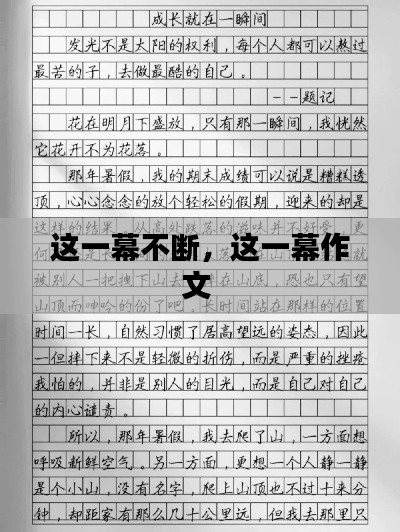 成长就在一瞬间
发光不是太阳的权利，每个人都可以熬过
最苦的子，去做最酷的自己。
--题记
花在明月下盛放，只有那一瞬间，我恍然
它花开不为花落。
那年暑假，我的期末成绩可以说是糟糕透
顶，心心念念的放个轻松的假期，迎来的却是
这样的结果。从高处跌落的滋味并不好受，更
这一幕不断，这一幕作
文
被别人一把拽下山去
在山底，恐也只有望
山顶而呻吟的份了吧。长时间站在那样的位置
时间一长，自然习惯了居高望远的姿态，因此
一但摔下来不是轻微的折伤，而是严重的挫疼
我怕的，并非是别人的目光，而是自己对自己
的内心谴责。
所以，那年暑假，我去爬了山，一方面想
呼吸新鲜空气。另一方面，更想一个人静一静
是个小山，没有名字，爬上山顶也不过十来分
钟，却距家有那么几十公里远，但我去那里只